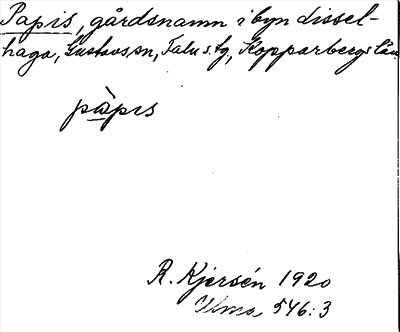 Papis, gårdsnamn i byn dissel-
haga, Gustavs sn, Falu s. tg, Kopparbergs län
pàpıs
R. Kjersén 1920
Ulma 546:3